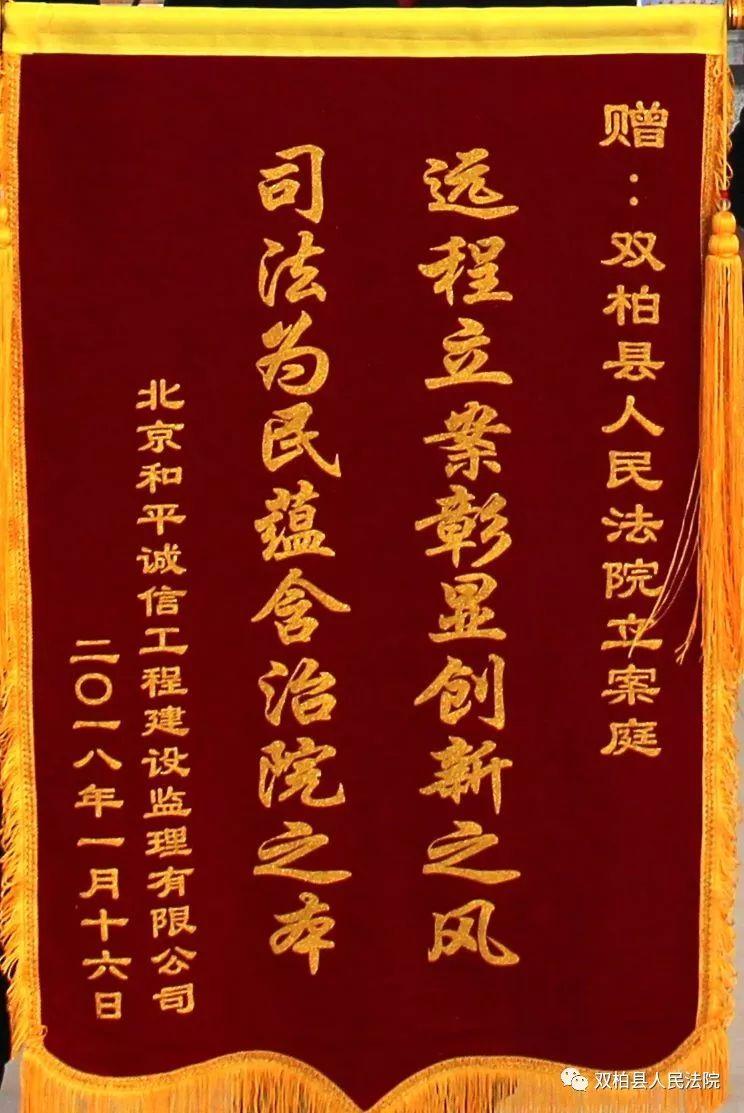 赠：双柏县人民法院立案庭
远程立案彰显创新之风
司法为民蕴含治院之本
北京和平诚信工程建设监理有限公司
二〇一八年一月十六日
双柏县人民法院